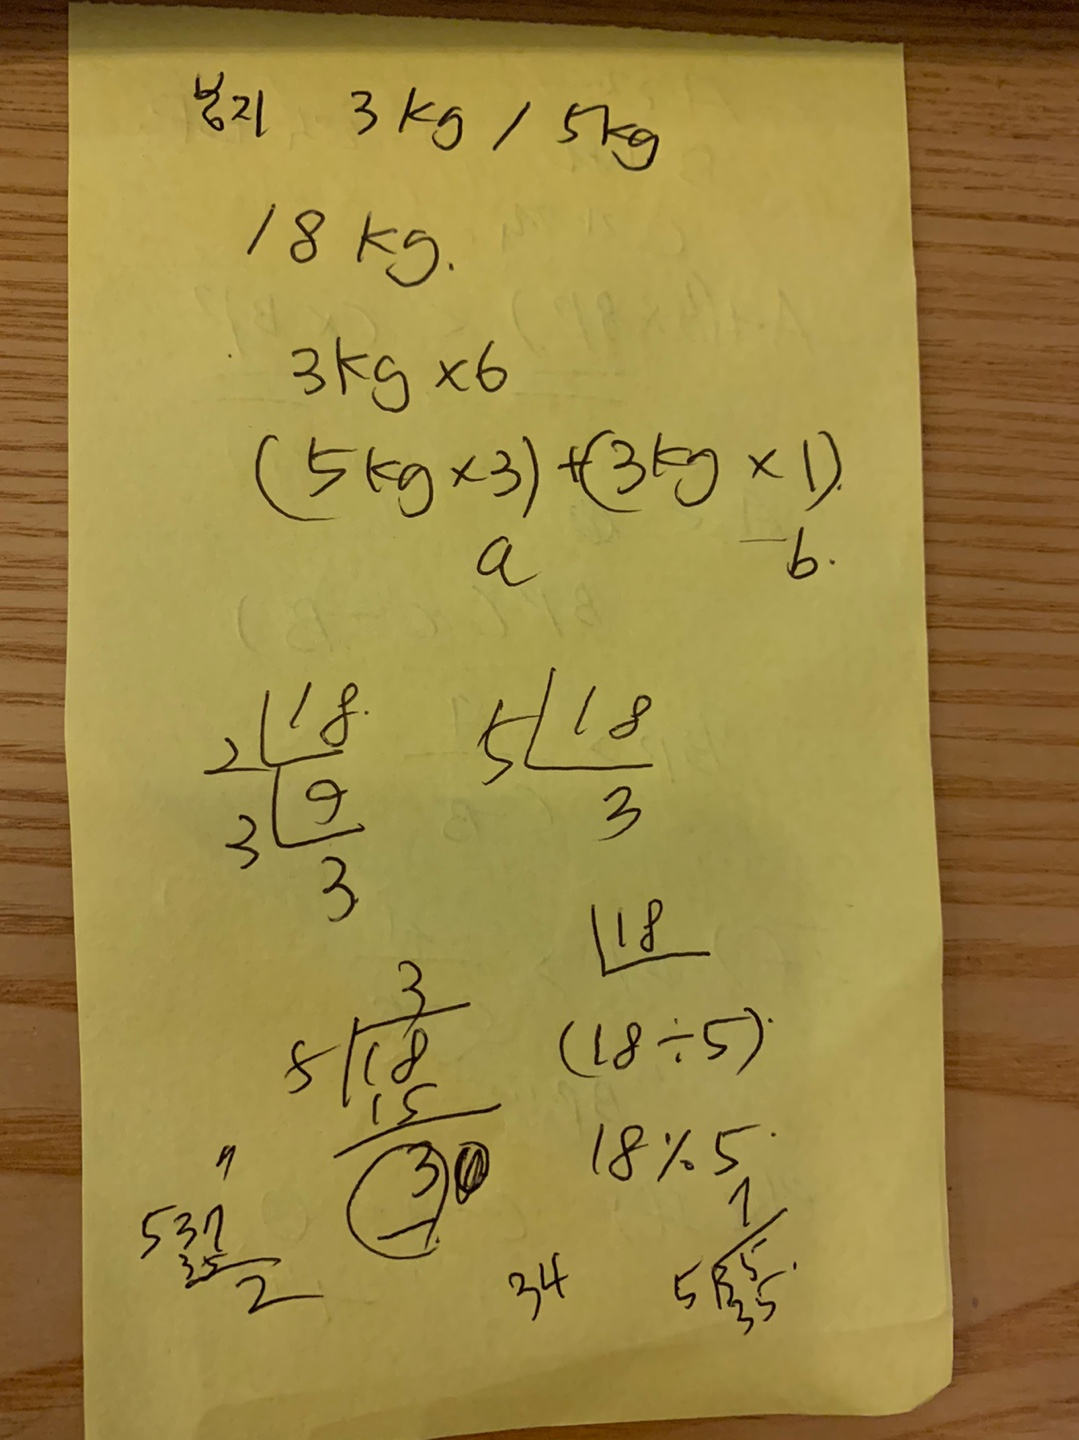 봉지 3kg / 5kg
18 kg.
3kg ×6
(5kg ×3) + (3kg × 1).
a b.
2 18.
3 9
3
5 18
3
18
3
5 18
15
3
(18 ÷ 5)
18 % 5
7
5 37
35
2
34
7
5 35
35